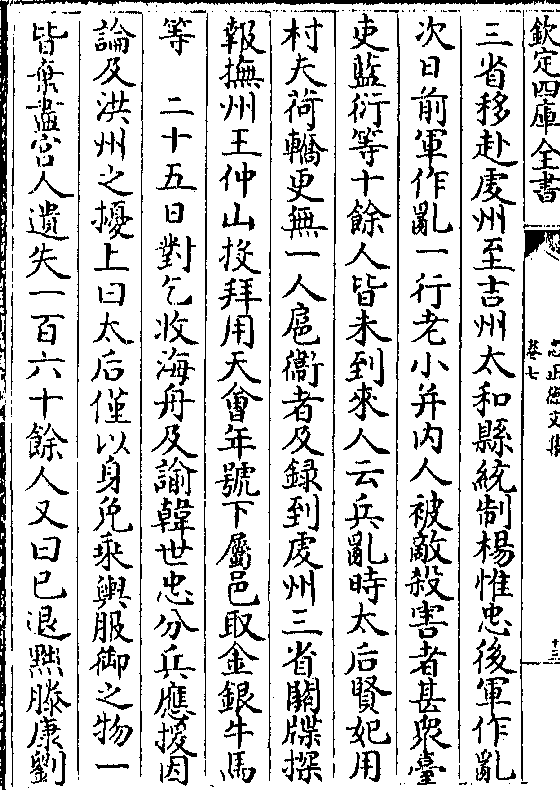 欽定四庫全書
忠正德文集
卷七
十三
三省移赴䖍州至吉州太和縣統制楊惟忠後軍作亂
次日前軍作亂一行老小并内人被敵殺害者甚衆臺
吏藍衍等十餘人皆未到來人云兵亂時太后賢妃用
村夫荷轎更無一人扈衞者及録到䖍州三省關牒探
報撫州王仲山投拜用天會年號下屬邑取金銀牛馬
等　二十五日對乞收海舟及諭韓世忠分兵應援因
論及洪州之擾上曰太后僅以身免乘輿服御之物一
皆棄盡宫人遺失一百六十餘人又曰已退黜滕康劉